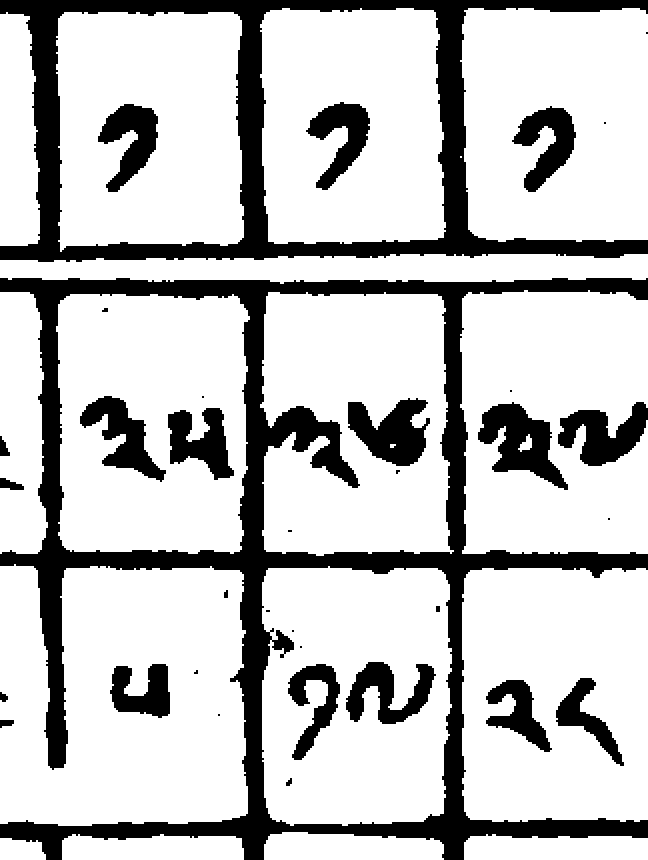 ༡ ༡ ༡
༣༥ ༣༦ ༣༧
༥ ༡༧ ༢༨